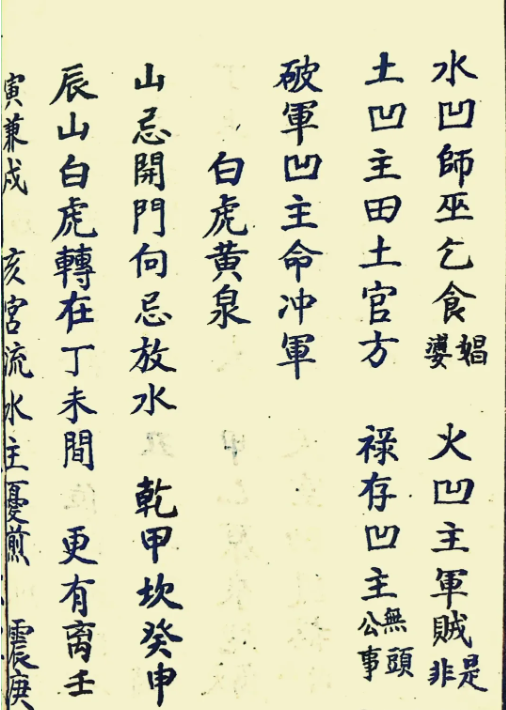 水凹師巫乞食娼婆　火凹主軍賊是非
土凹主田土官方　祿存凹主無頭公事
破軍凹主命冲軍
白虎黄泉
山忌開門向忌放水　乾甲坎癸申
辰山白虎轉在丁未間　更有离壬
寅兼戍　亥宮流水主憂煎　震庚